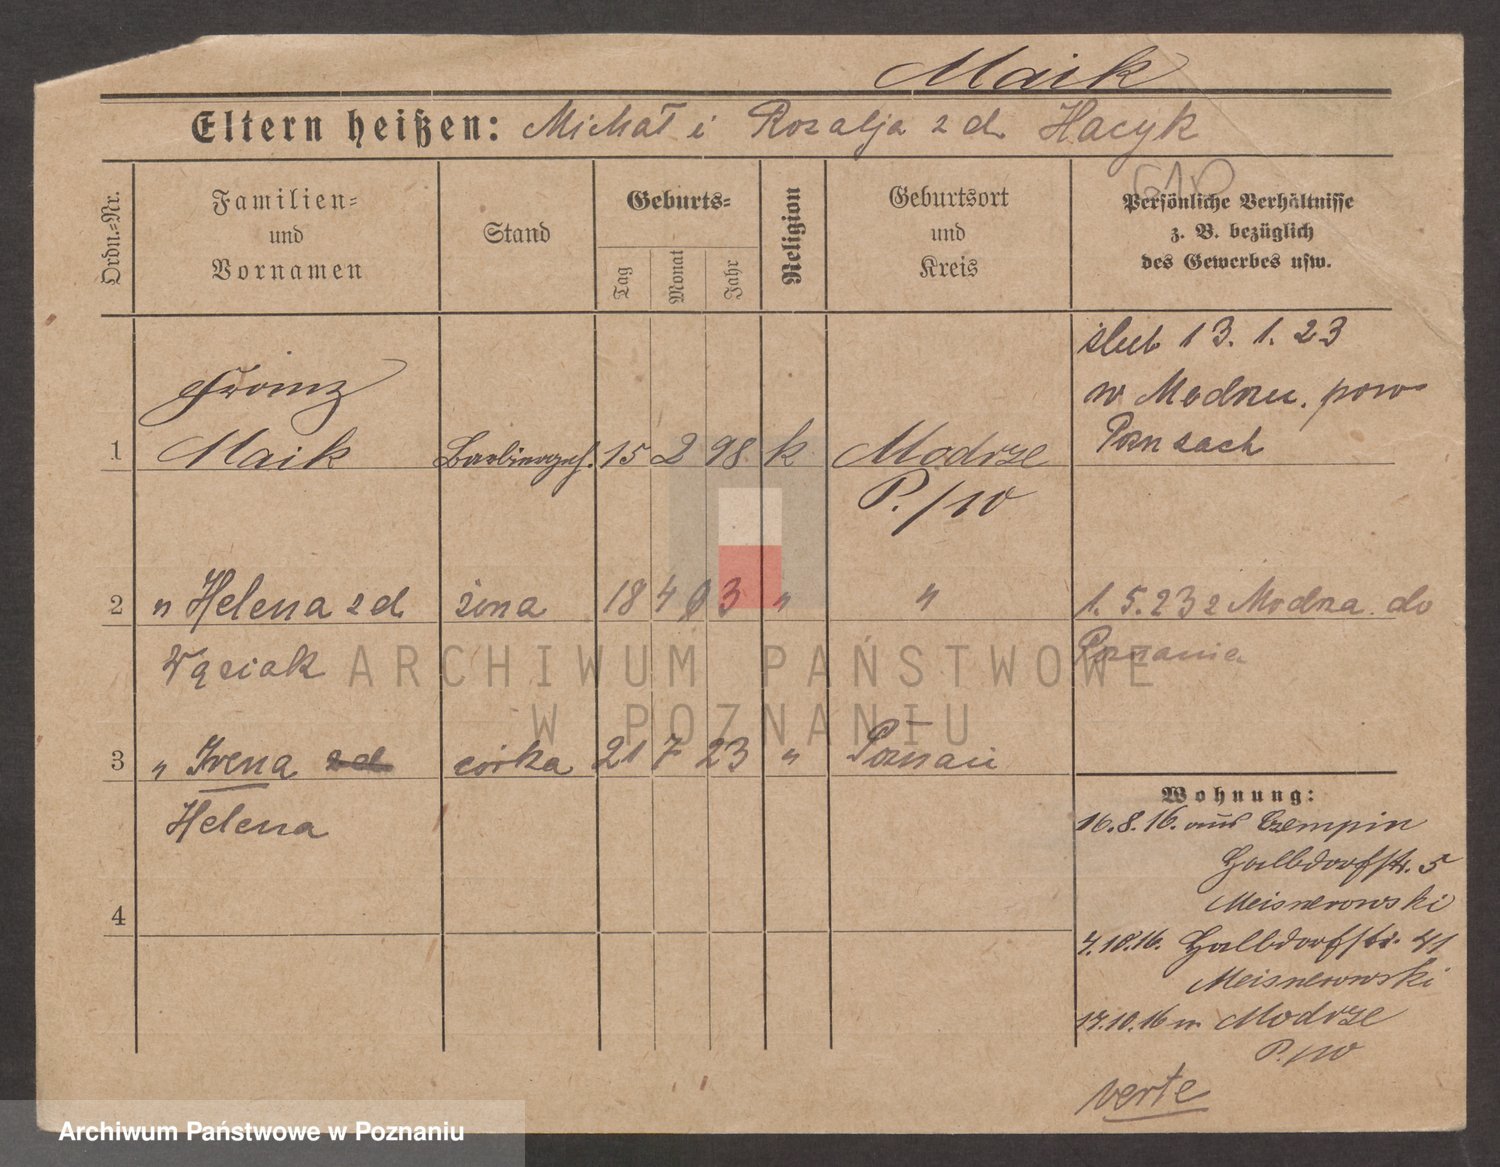 Maik
Eltern heißen: Michał i Rozalja z d. Hacyk
Ordn.-Nr.
Familien-
und
Vornamen
Stand
Geburts-
Tag
Monat
Jahr
Religion
Geburtsort
und
Kreis
Persönliche Verhältnisse
z. B. bezüglich
des Gewerbes usw.
ślub 13. 1. 23
w Modrzu. pow
Pozn zach
Franz
1 Maik Barbiergeh. 15 2 98 k Modrze
P./W
2 " Helena z d żona 18 4 03 " " 1. 5. 23 z Modrza do
Wąsiak Poznania
3 " Irena z d córka 21 7 23 " Poznań
Helena
4
Wohnung:
16.8.16. aus Czempin
Halbdorfstr. 5
Meisnerowski
4.10.16. Halbdorfstr. 41
Meisnerowski
17.10.16 n. Modrze
P./W
verte
ARCHIWUM PAŃSTWOWE
W POZNANIU
Archiwum Państwowe w Poznaniu